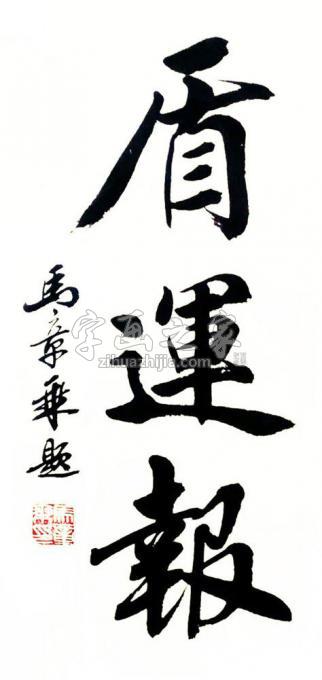 盾運報
馬章乘題
字画之家
zihuazhijia.com